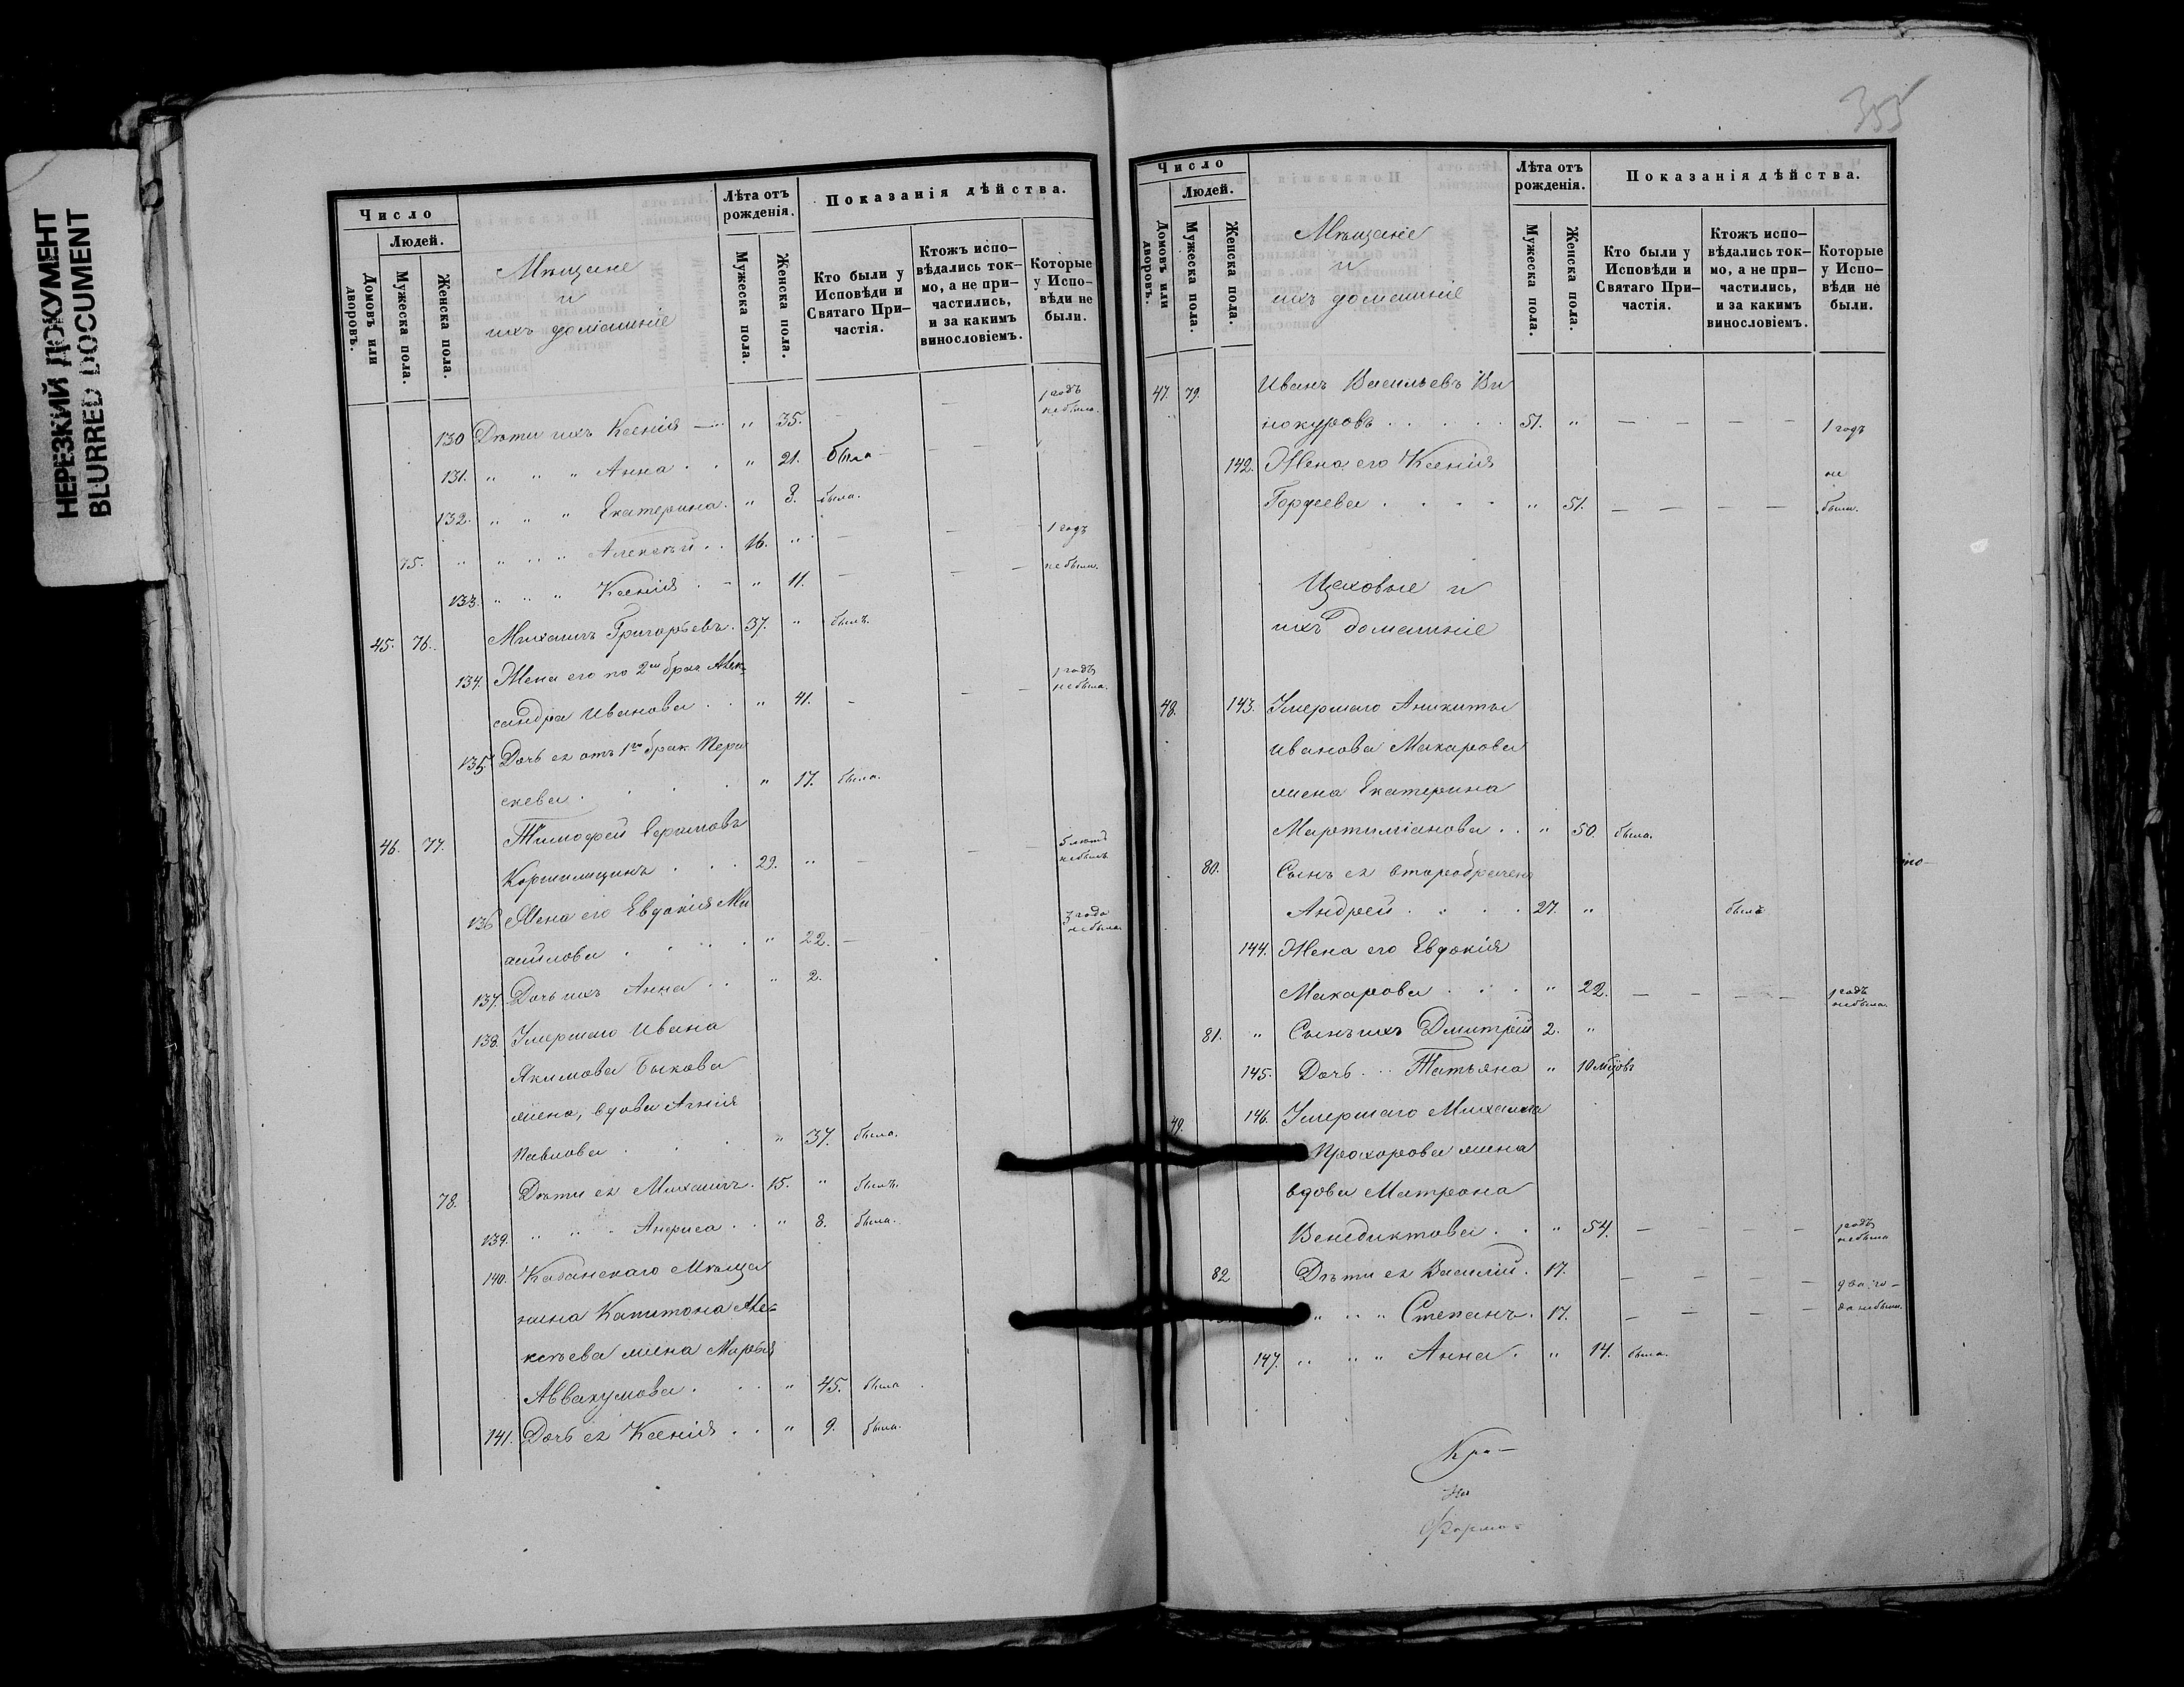 НЕРЕЗКИЙ ДОКУМЕНТ
BLURRED DOCUMENT
Число
Людей.
Домовъ или дворовъ.
Мужеска пола.
Женска пола.
Мѣщане
и
ихъ домашніе
Лѣта отъ рожденія.
Мужеска пола.
Женска пола.
Показанія дѣйства.
Кто были у Исповѣди и Святаго При-частія.
Ктожъ испо-вѣдались ток-мо, а не при-частились, и за какимъ винословіемъ.
Которые у Испо-вѣди не были.
130 Дѣти ихъ Ксенія — " 35. — — 1 годъ не была.
131. " " " Анна . . " 21. была —
132. " " " Екатерина . " 8. была.
75. " " " " Алексѣй . . 16. " — — 1 годъ
133. " " " Ксенія . - " 11. — — — не были.
45. 76. Михаилъ Григорьевъ. 37. " былъ.
134. Жена его по 2му браку Алек-
сандра Иванова . . " 41. - — — 1 годъ не была.
135. Дочь ея отъ 1го брака Пара
скева . . . . " 17. была.
46. 77. Тимофей Ефимовъ
. . . 29. " — — — 5 лѣтъ не былъ
136 Жена его Евдокія Ми
хайлова . . . . " 22. — 3 года не была.
137. Дочь ихъ Анна . . " 2.
138. Умершаго Ивана
Якимова Быкова
жена, вдова Агнія
Павлова . . . " 37. была.
78. Дѣти ея Михаилъ. 15. " былъ.
139. " " " Анфиса . . " 8. была.
140. Казанскаго Мѣща
нина Капитона Але-
ксѣева жена Марѳа
Аввакумова . . . " 45. была
141. Дочь ея Ксенія . . " 9. была.
355
Число
Людей.
Домовъ или дворовъ.
Мужеска пола.
Женска пола.
Мѣщане
и
ихъ домашніе
Лѣта отъ рожденія.
Мужеска пола.
Женска пола.
Показанія дѣйства.
Кто были у Исповѣди и Святаго При-частія.
Ктожъ испо-вѣдались ток-мо, а не при-частились, и за какимъ винословіемъ.
Которые у Испо-вѣди не были.
47. 79. Иванъ Васильевъ Ви
нокуровъ . . . . . 51. " — — — — 1 годъ
142. Жена его Ксенія не
Гордеева . . . . " 51. — — — — были.
Цеховые и
ихъ домашніе
48. 143. Умершаго Аникиты
Иванова Макарова
жена Екатерина
Мартиміанова . . " 50. была.
80. Сынъ ея
Андрей . . . . 27. " былъ
144. Жена его Евдокія
Макарова . . . " 22. — — — — 1 годъ не была.
81. " Сынъ ихъ Дмитрій 2. "
145. Дочь . . . Татьяна " 10 мѣцовъ
49. 146. Умершаго Михаила
Прохорова жена
вдова Матрона
Венедиктова . . " 54. — — — — 1 годъ не была
82 Дѣти ея Василій. 17. — — — — два го-
" " " Степанъ. 17. — — — — да не были.
147. " " " Анна . " 14. была.
Кра-